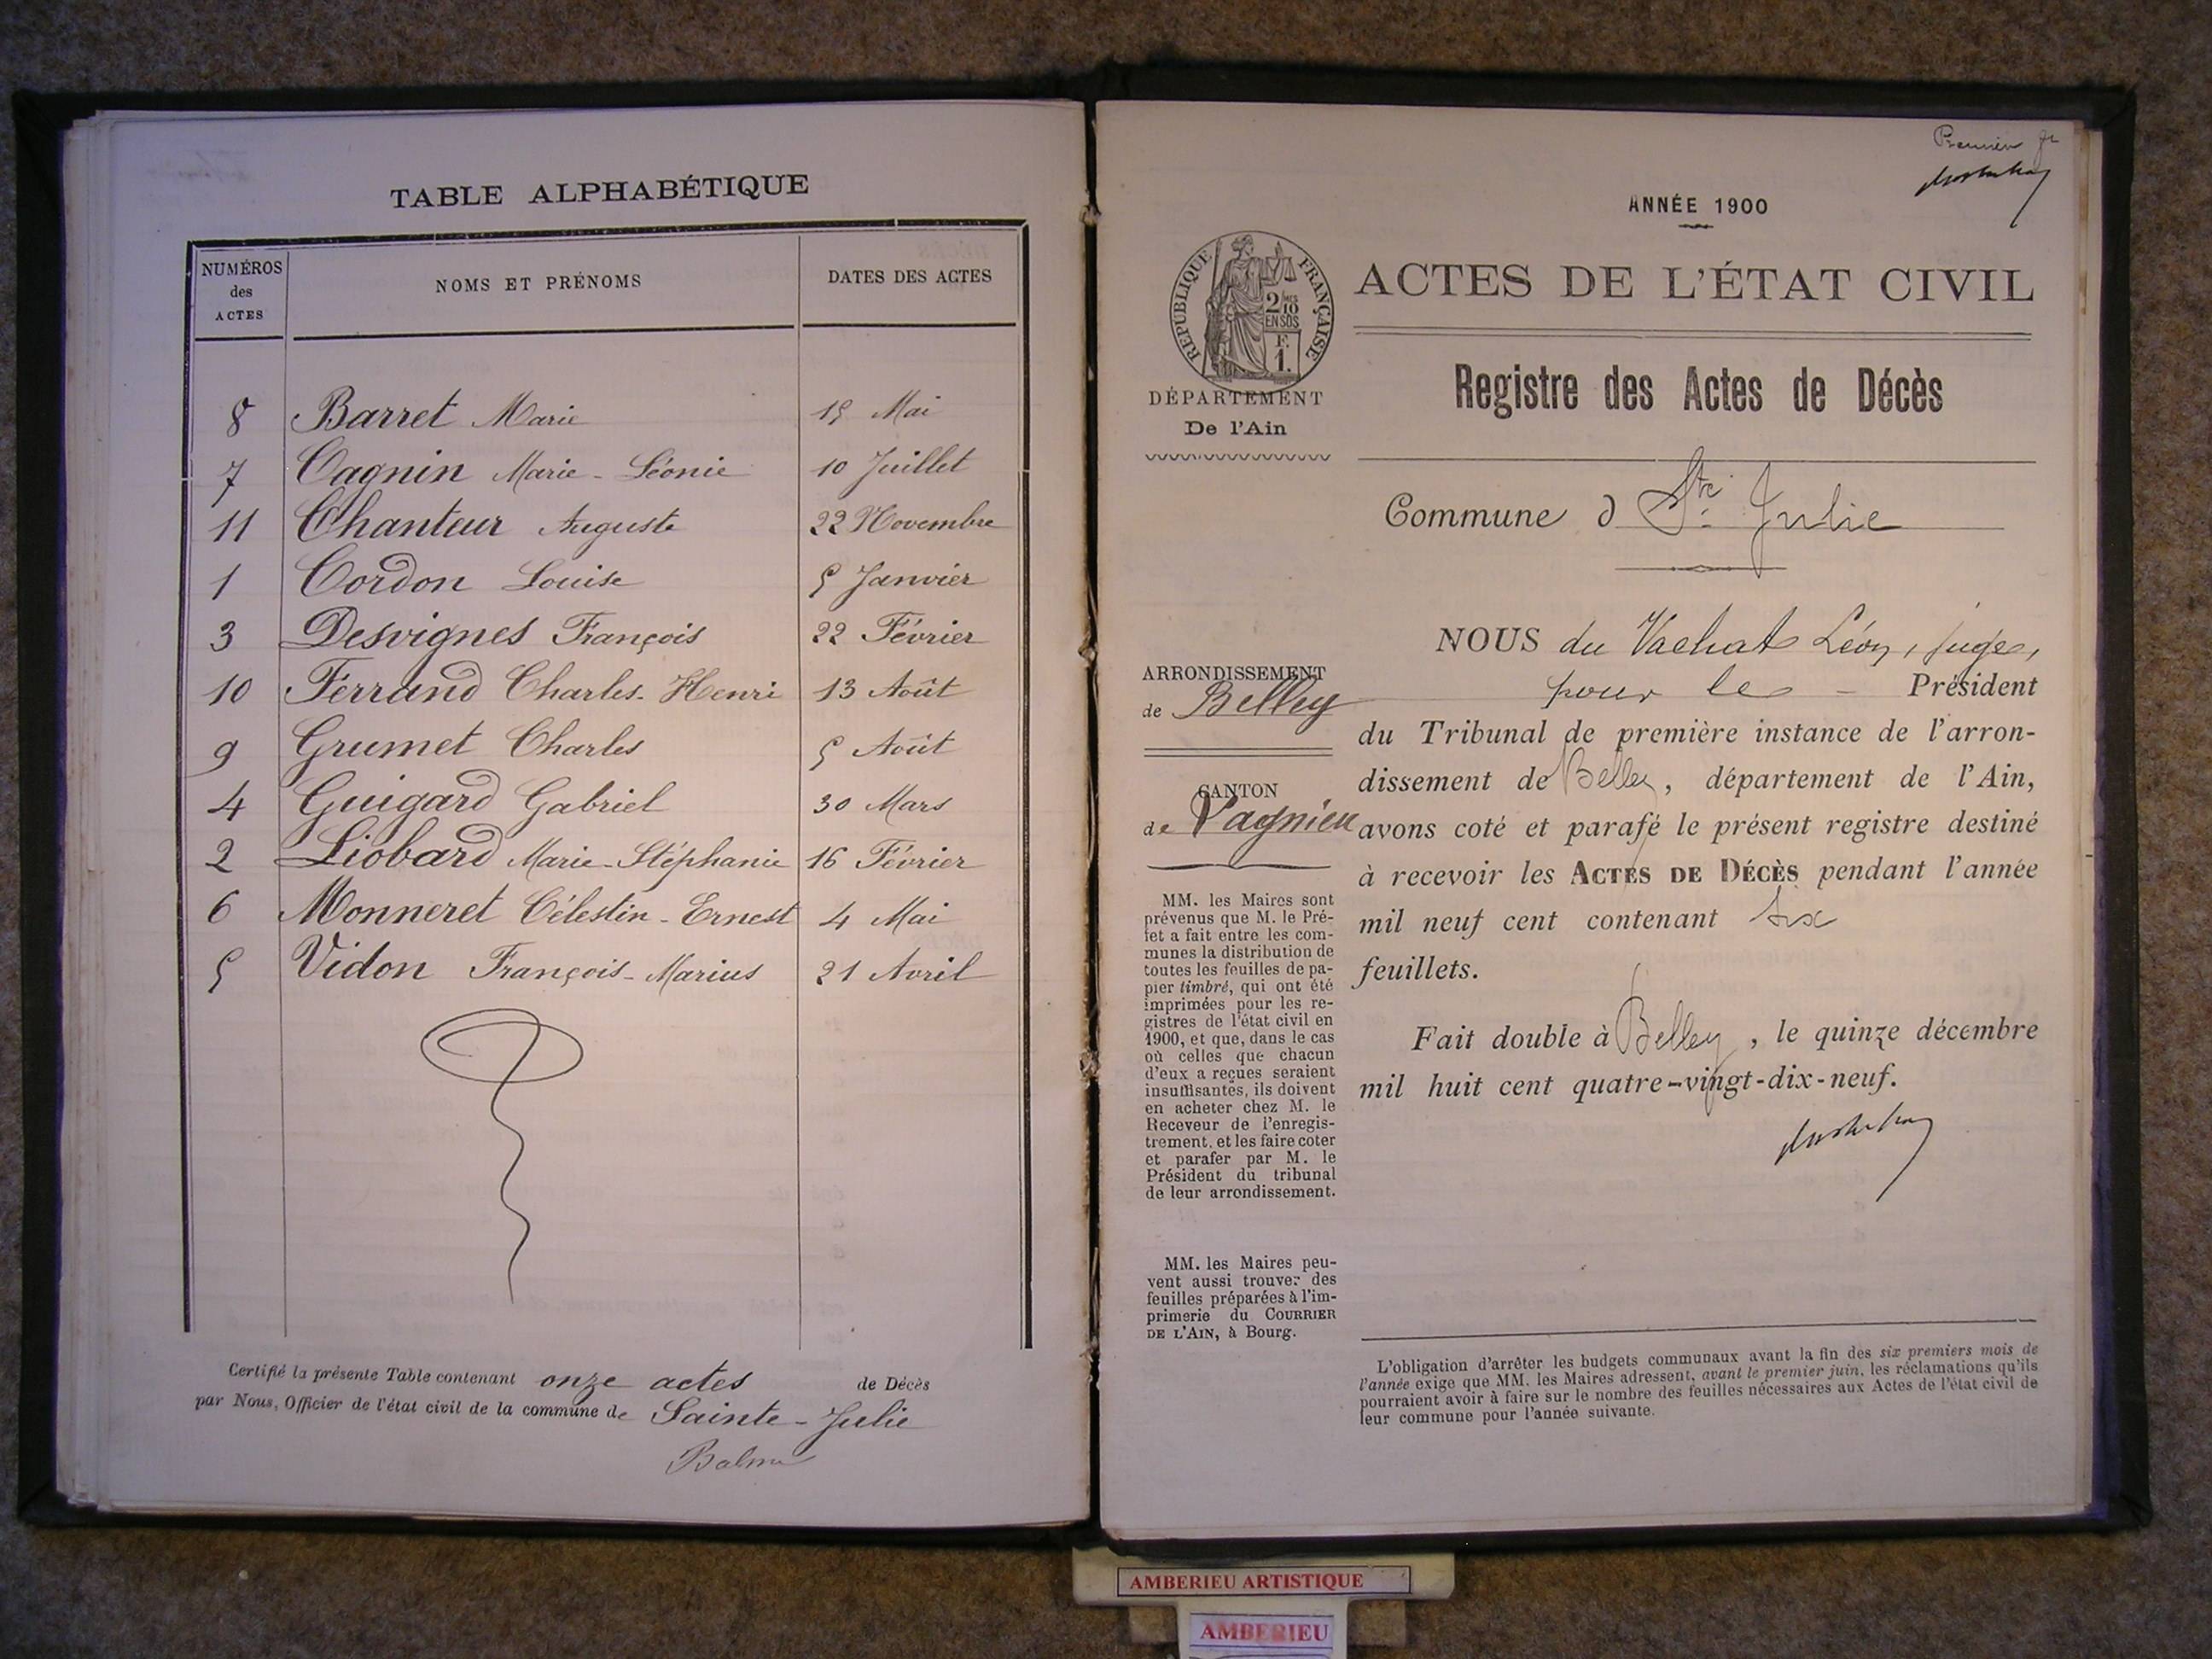 TABLE ALPHABÉTIQUE
NUMÉROS des ACTES
NOMS ET PRÉNOMS
DATES DES ACTES
8 Barret Marie 15 Mai
7 Cagnin Marie-Léonie 10 Juillet
11 Chanteur Auguste 22 Novembre
1 Cordon Louise 5 Janvier
3 Desvignes François 22 Février
10 Ferrand Charles-Henri 13 Août
9 Grumet Charles 5 Août
4 Guigard Gabriel 30 Mars
2 Liobard Marie-Stéphanie 16 Février
6 Monneret Célestin-Ernest 4 Mai
5 Vidon François-Marius 21 Avril
Certifié la présente Table contenant onze actes de Décès
par Nous, Officier de l'état civil de la commune de Sainte-Julie
Premier
ANNÉE 1900
RÉPUBLIQUE FRANÇAISE
2/10
EN SUS
F.
1.
ACTES DE L'ÉTAT CIVIL
DÉPARTEMENT
De l'Ain
Registre des Actes de Décès
Commune d Ste Julie
ARRONDISSEMENT
de Belley
CANTON
de Lagnieu
MM. les Maires sont
prévenus que M. le Pré-
fet a fait entre les com-
munes la distribution de
toutes les feuilles de pa-
pier timbré, qui ont été
imprimées pour les re-
gistres de l'état civil en
1900, et que, dans le cas
où celles que chacun
d'eux a reçues seraient
insuffisantes, ils doivent
en acheter chez M. le
Receveur de l'enregis-
trement, et les faire coter
et parafer par M. le
Président du tribunal
de leur arrondissement.
MM. les Maires peu-
vent aussi trouver des
feuilles préparées à l'im-
primerie du COURRIER
DE L'AIN, à Bourg.
NOUS du Vachat Léon, juge,
pour le - Président
du Tribunal de première instance de l'arron-
dissement de Belley, département de l'Ain,
avons coté et parafé le présent registre destiné
à recevoir les ACTES DE DÉCÈS pendant l'année
mil neuf cent contenant six
feuillets.
Fait double à Belley, le quinze décembre
mil huit cent quatre-vingt-dix-neuf.
L'obligation d'arrêter les budgets communaux avant la fin des six premiers mois de
l'année exige que MM. les Maires adressent, avant le premier juin, les réclamations qu'ils
pourraient avoir à faire sur le nombre des feuilles nécessaires aux Actes de l'état civil de
leur commune pour l'année suivante.
AMBERIEU ARTISTIQUE
AMBERIEU